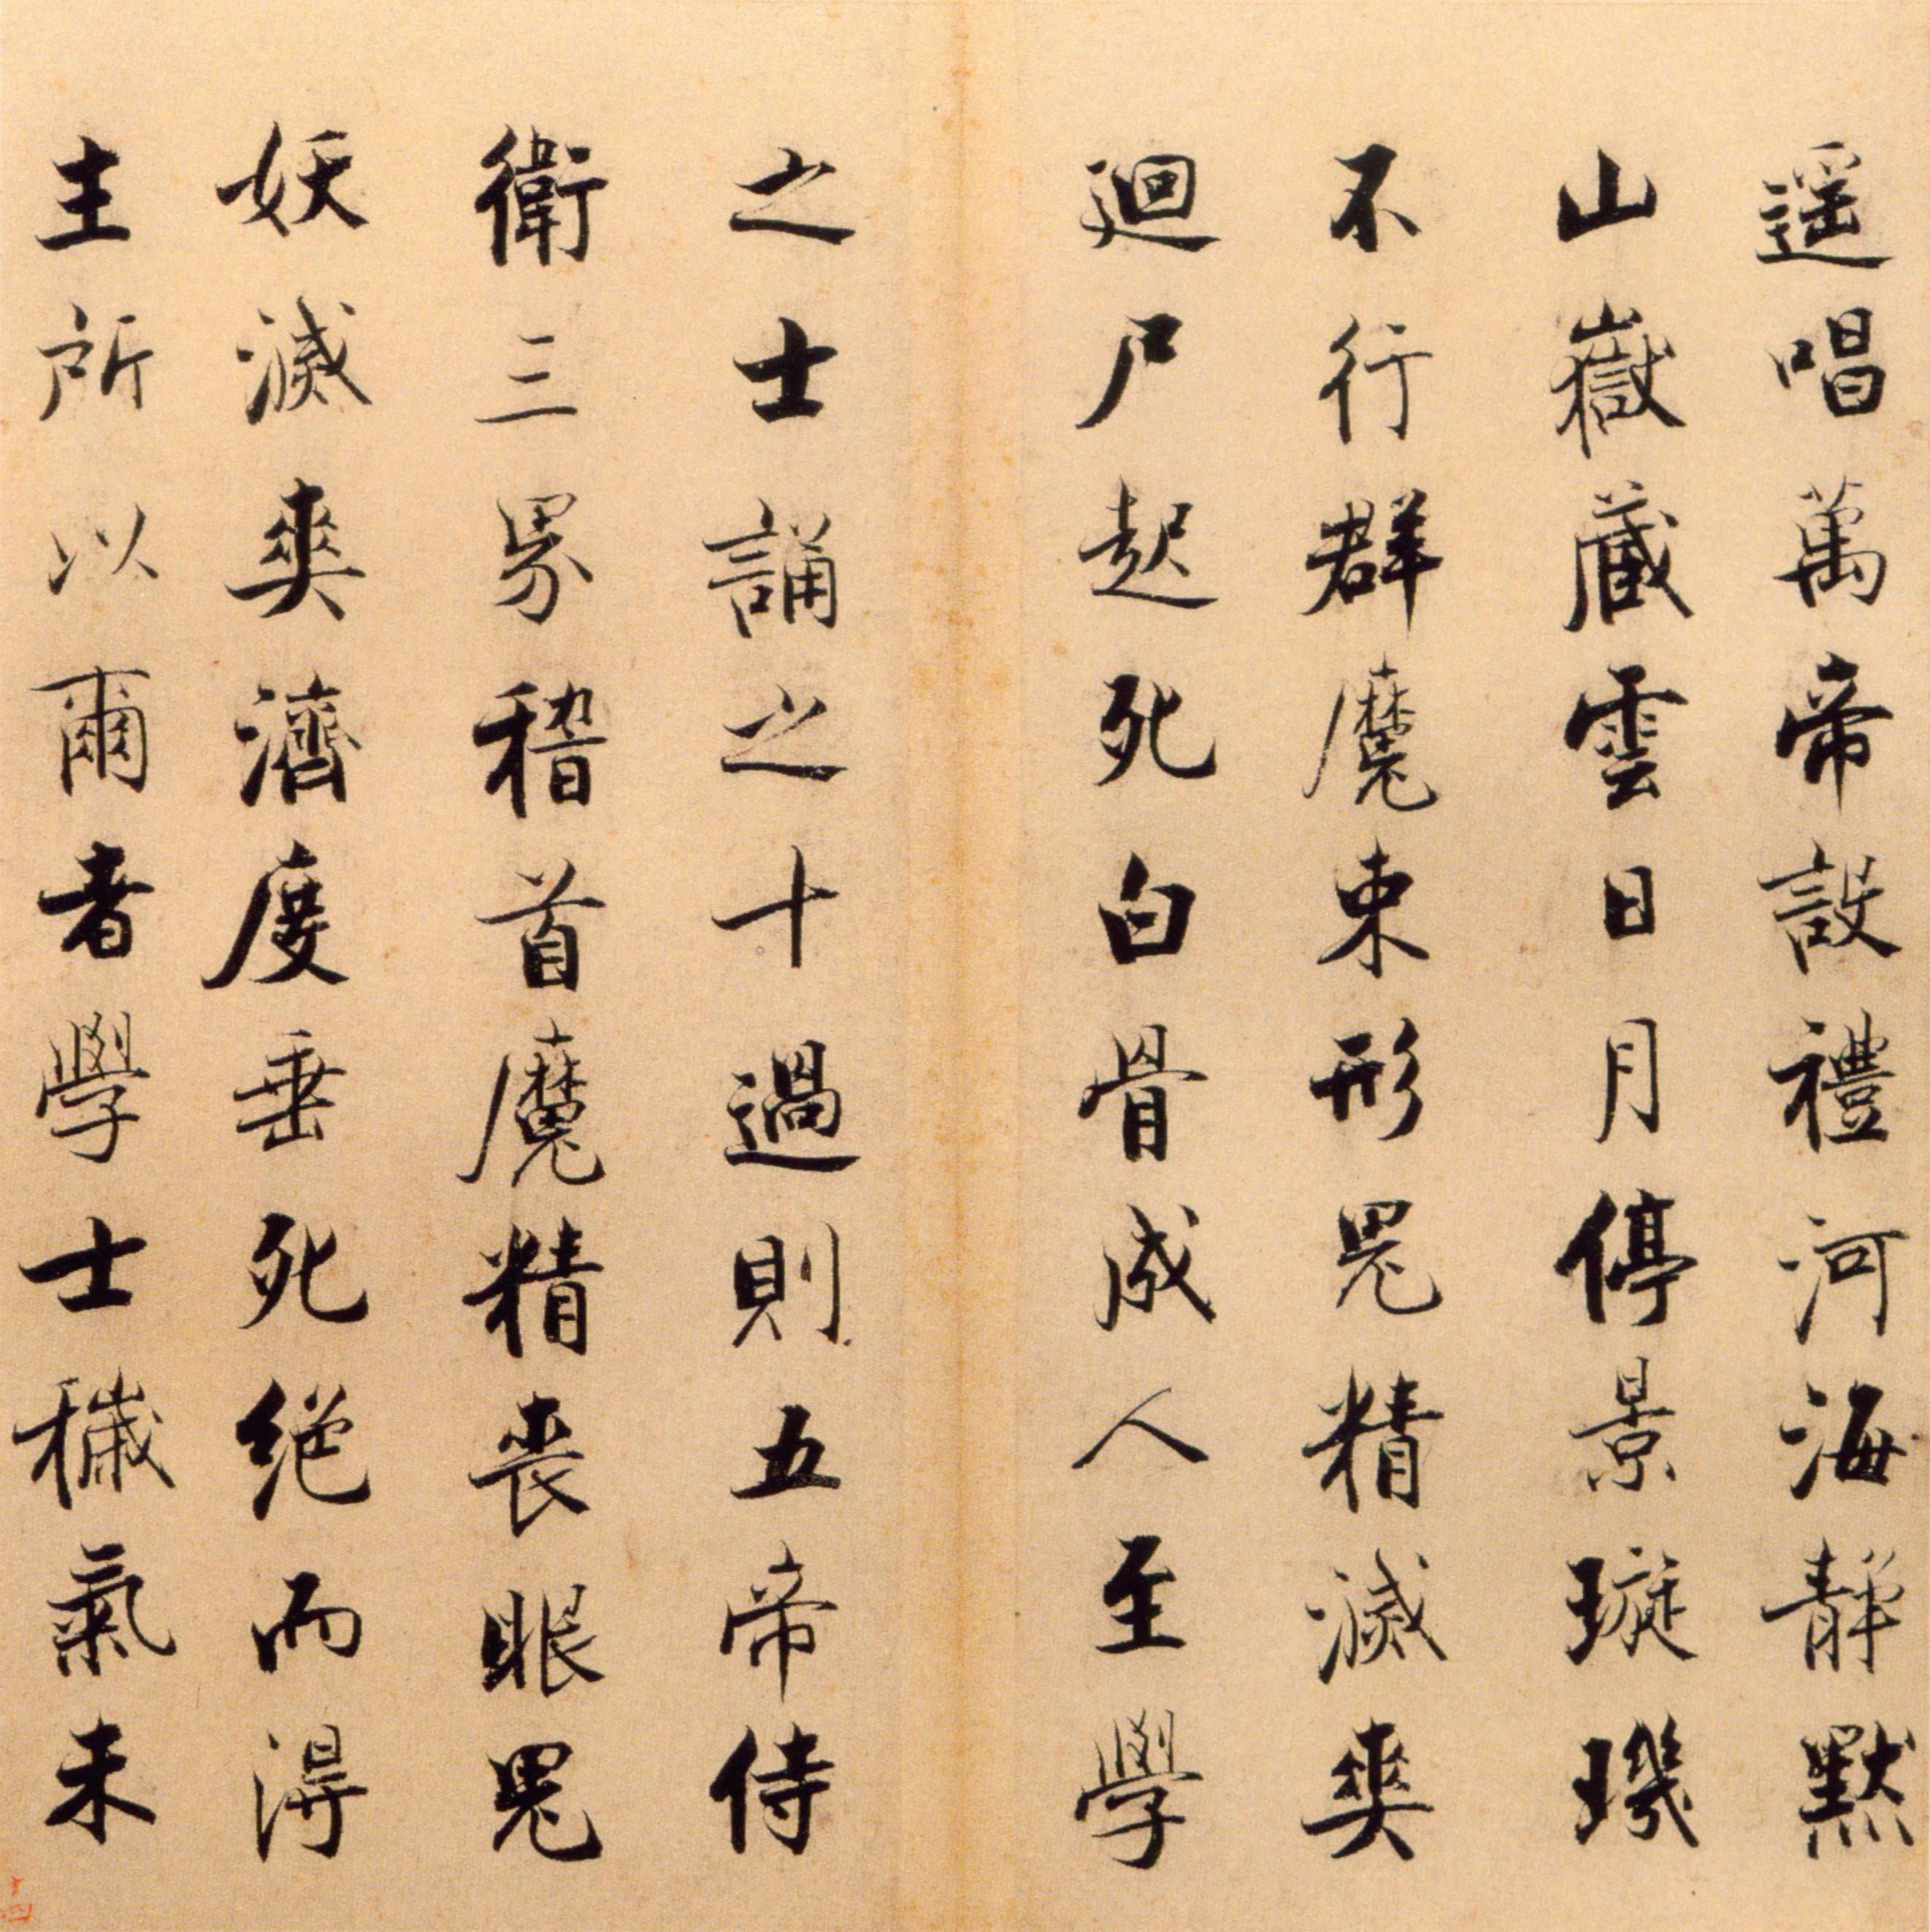 遥唱萬帝設禮河海靜默
山嶽藏雲日月停景璇璣
不行群魔束形鬼精滅爽
迴尸起死白骨成人至學
之士誦之十過則五帝侍
衛三界稽首魔精喪眼鬼
妖滅爽濟度垂死絕而得
主所以爾者學士穢氣未